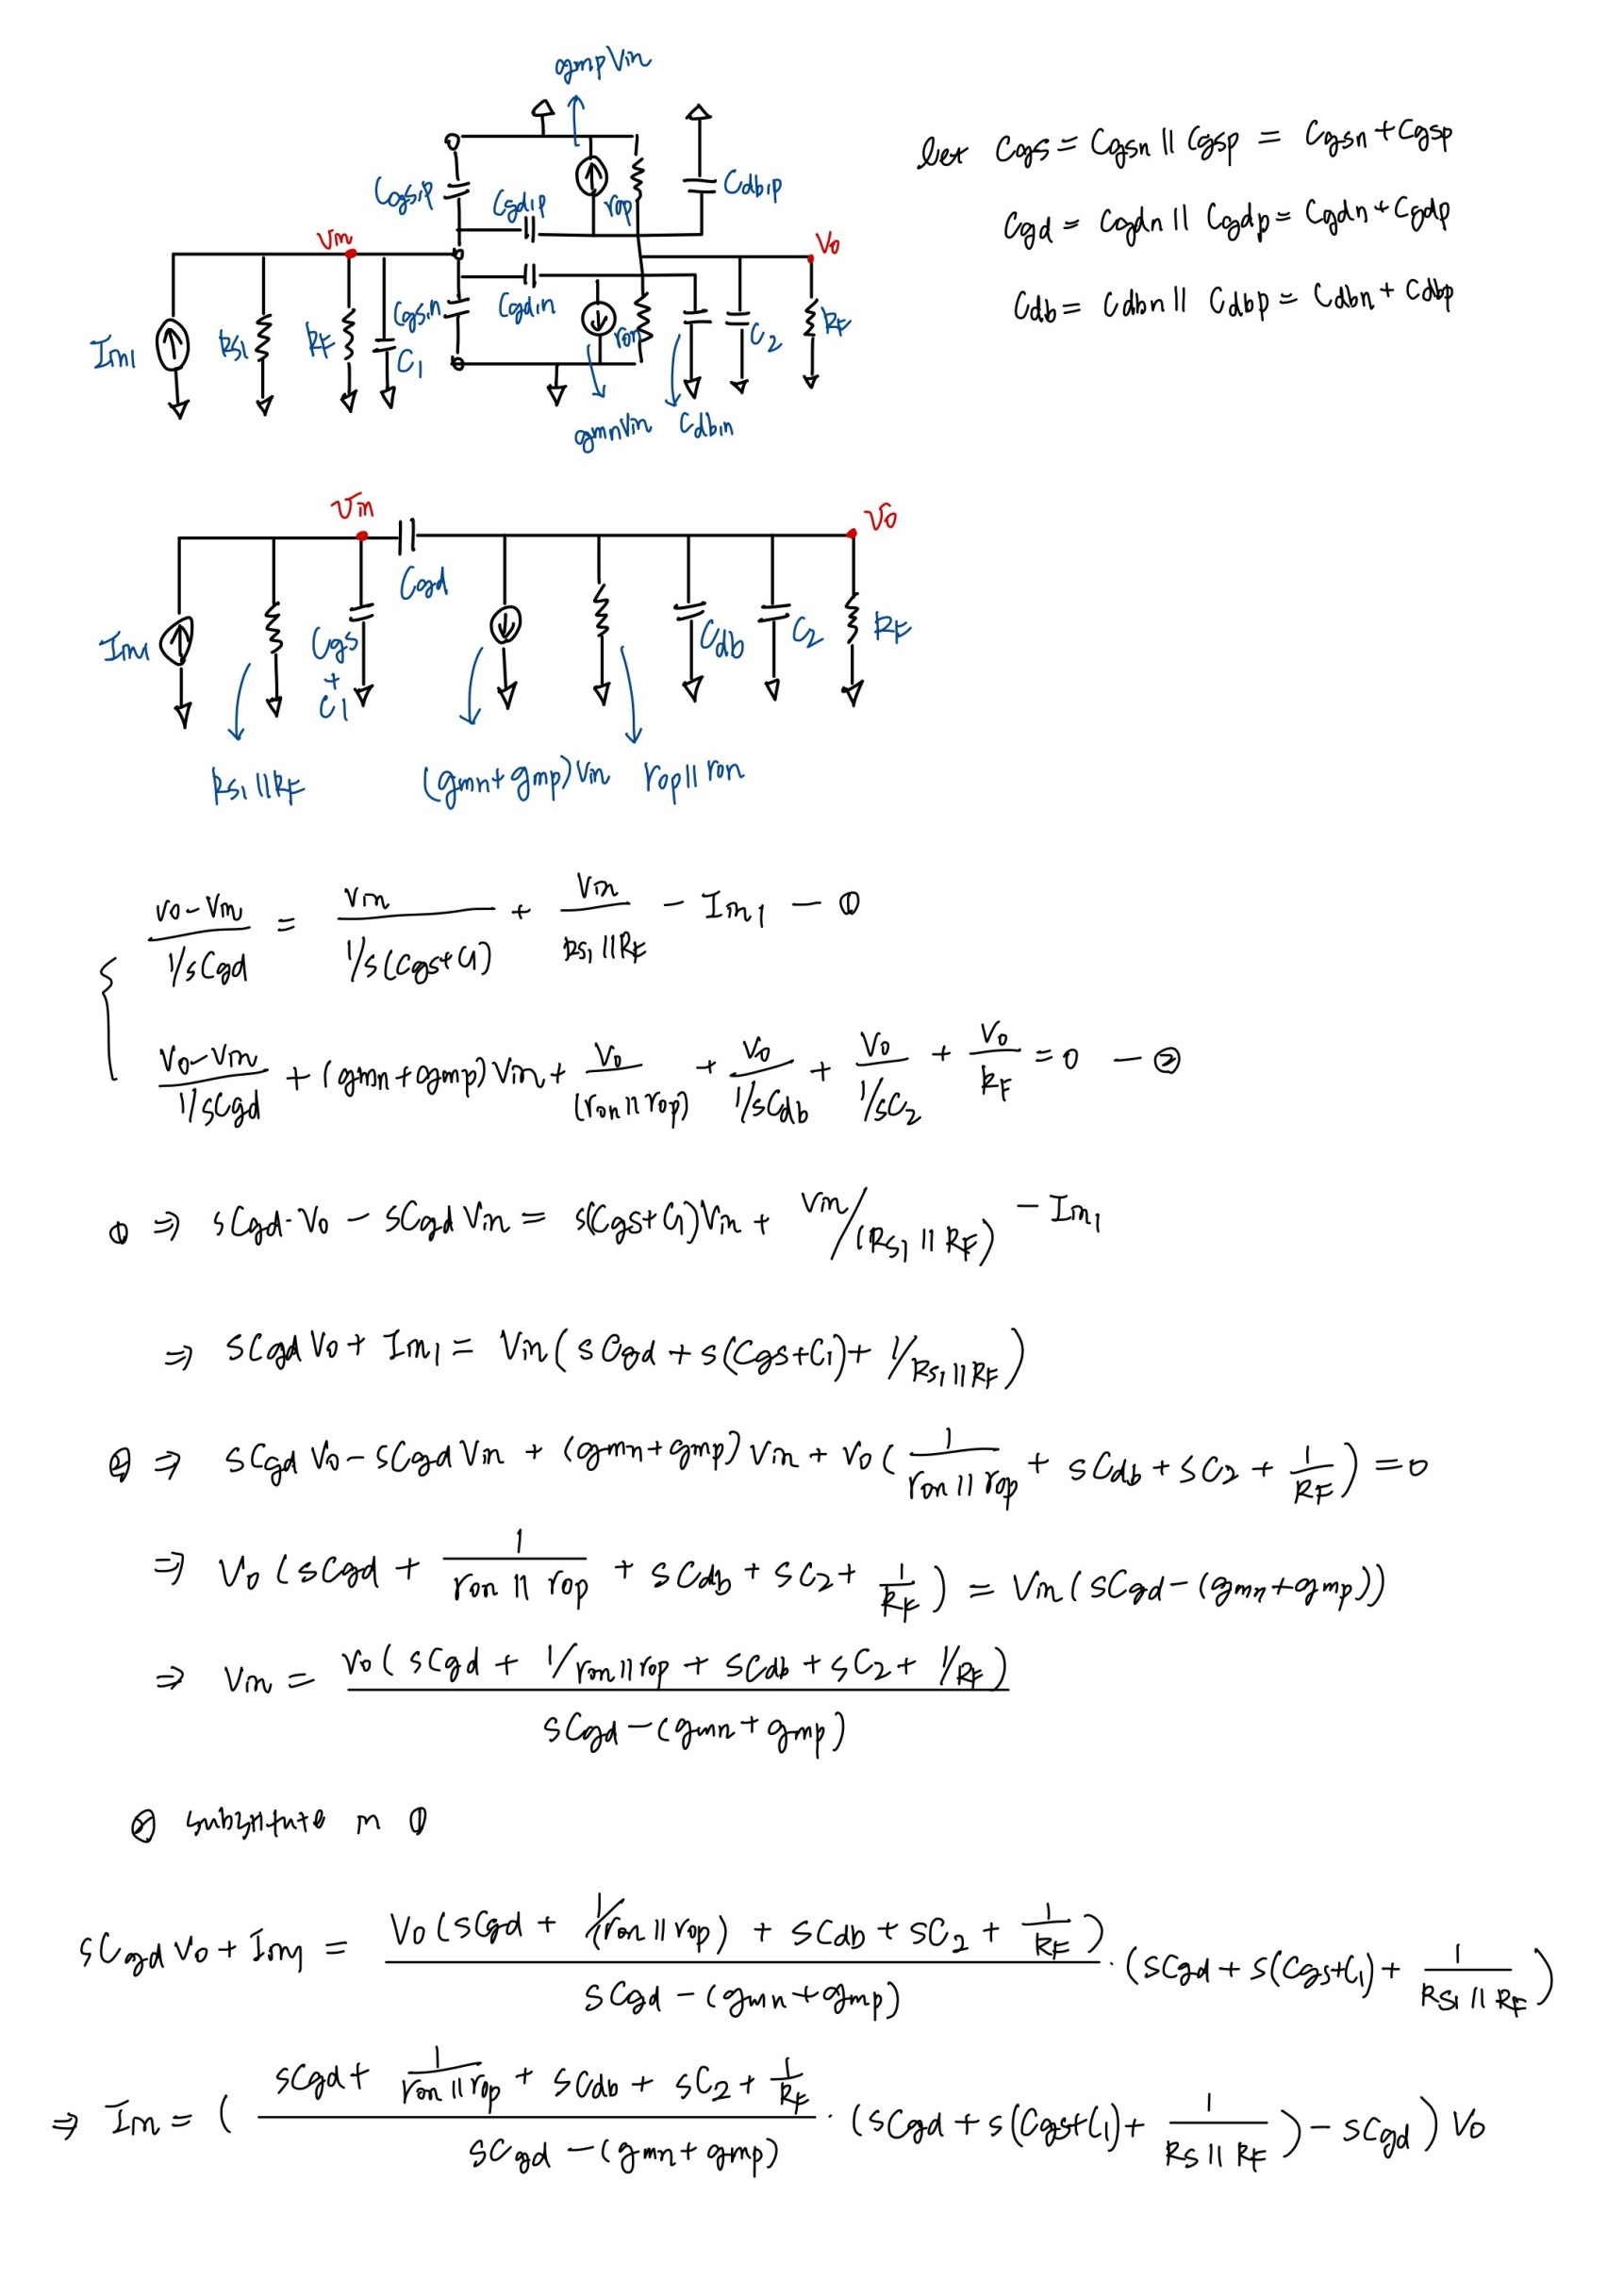 gmpVin
Cgs1p
Cgd1p
rop
Cdb1p
let Cgs = Cgsn || Cgsp = Cgsn + Cgsp
Cgd = Cgdn || Cgdp = Cgdn + Cgdp
Cdb = Cdbn || Cdbp = Cdbn + Cdbp
Vin
Vo
Iin1
Rs1
RF
C1
Cgs1n
Cgd1n
ron
C2
RF
gmnVin
Cdb1n
Vin
Vo
Cgd
Iin1
Cgs + C1
Cdb
C2
RF
Rs1 || RF
(gmn + gmp) Vin
rop || ron
Vo - Vin / 1/sCgd = Vin / 1/s(Cgs + C1) + Vin / Rs1 || RF - Iin1 - ①
Vo - Vin / 1/sCgd + (gmn + gmp) Vin + Vo / (ron || rop) + Vo / 1/sCdb + Vo / 1/sC2 + Vo / RF = 0 - ②
① ⇒ sCgd · Vo - sCgd Vin = s(Cgs + C1) Vin + Vin / (Rs1 || RF) - Iin1
⇒ sCgd Vo + Iin1 = Vin (sCgd + s(Cgs + C1) + 1/Rs1 || RF)
② ⇒ sCgd Vo - sCgd Vin + (gmn + gmp) Vin + Vo (1 / ron || rop + sCdb + sC2 + 1 / RF) = 0
⇒ Vo (sCgd + 1 / ron || rop + sCdb + sC2 + 1 / RF) = Vin (sCgd - (gmn + gmp))
⇒ Vin = Vo (sCgd + 1/ron || rop + sCdb + sC2 + 1/RF) / sCgd - (gmn + gmp)
② substitute in ①
sCgd Vo + Iin1 = Vo (sCgd + 1/(ron || rop) + sCdb + sC2 + 1 / RF) / sCgd - (gmn + gmp) · (sCgd + s(Cgs + C1) + 1 / Rs1 || RF)
⇒ Iin = ( sCgd + 1 / ron || rop + sCdb + sC2 + 1 / RF / sCgd - (gmn + gmp) · (sCgd + s(Cgs + C1) + 1 / Rs || RF) - sCgd ) Vo